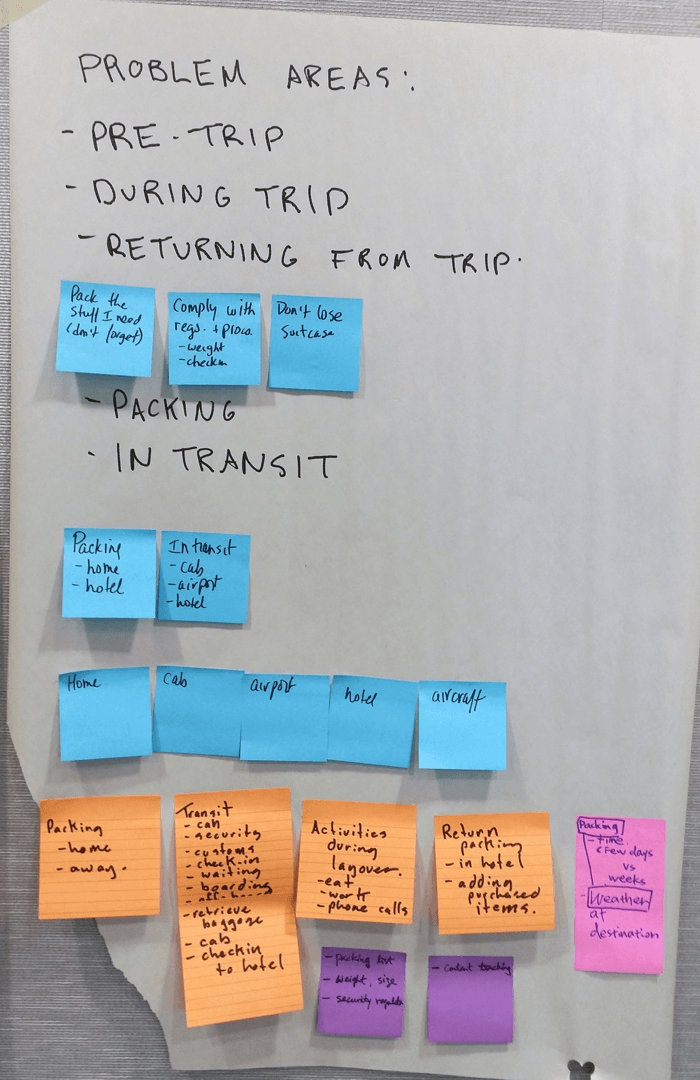 PROBLEM AREAS:
- PRE-TRIP
- DURING TRIP
- RETURNING FROM TRIP.
Pack the
stuff I need
(don't forget)
Comply with
regs. + procs.
- weight
- checkin
Don't lose
suitcase
- PACKING
- IN TRANSIT
Packing
- home
- hotel
In transit
- cab
- airport
- hotel
Home
cab
airport
hotel
aircraft
Packing
- home
- away.
Transit
- cab
- security
- customs
- check-in
- waiting
- boarding
- retrieve
baggage
- cab
- checkin
to hotel
Activities
during
layover.
- eat
- work
- phone calls
Return
packing
- in hotel
- adding
purchased
items.
Packing
- time
(few days
vs
weeks
- Weather
at
destination
- packing list
- weight, size
- security
- content tracking